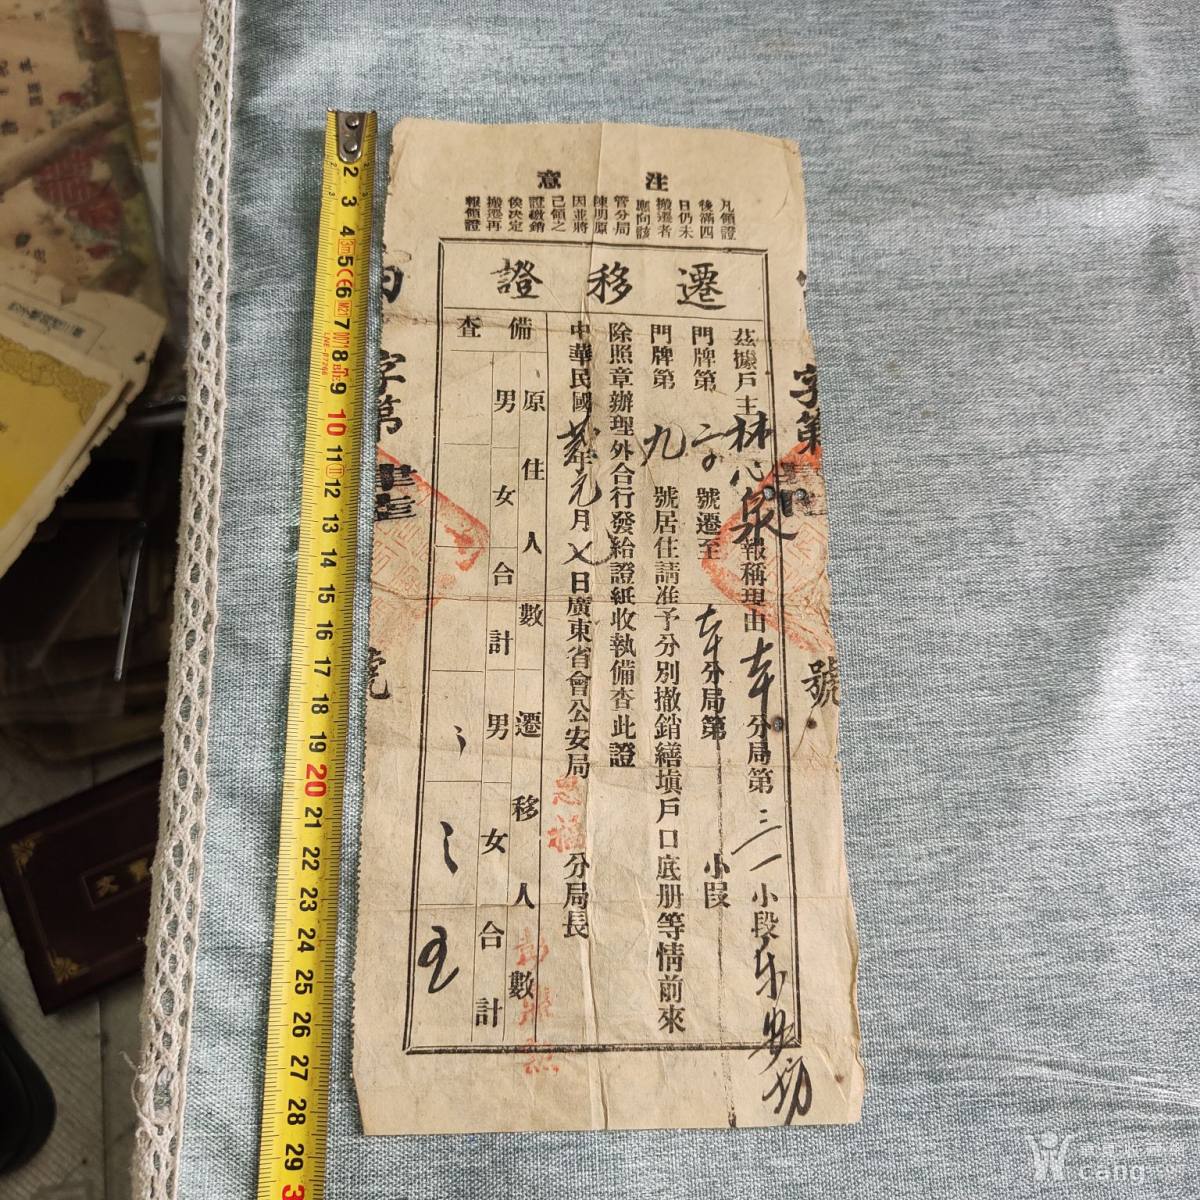 注意
凡領證
後滿四
日仍未
搬遷者
應向該
管分局
陳明原
因並將
已領之
證繳銷
俟決定
搬遷再
報領證
遷移證
字第
號
茲據戶主林心泉報稱現由本分局第三一小段乐安坊
門牌第 號遷至本分局第 小段
門牌第九號居住請准予分別撤銷繕塡戶口底册等情前來
除照章辦理外合行發給證紙收執備查此證
中華民國 年元月七日廣東省會公安局 分局長
備查
原住人數 遷移人數
男 女 合計 男 女 合計
字第
號